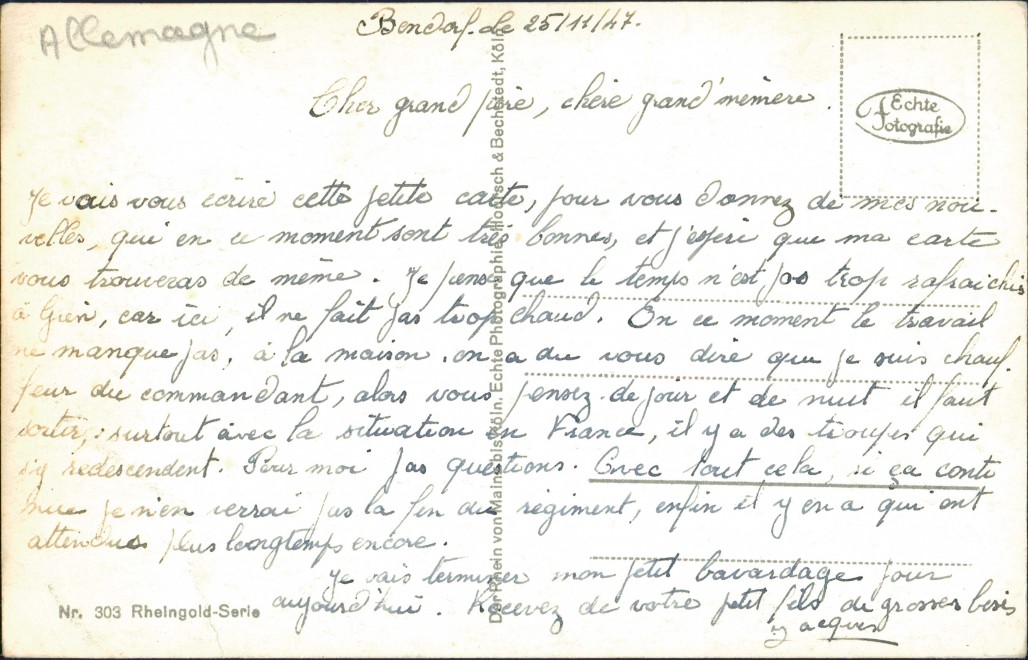 Allemagne
Bendorf. le 25/11/47.
Cher grand père, chère grand'mémère.
Echte
Fotografie
Je vais vous écrire cette petite carte, pour vous donnez de mes nou-
velles, qui en ce moment sont très bonnes, et j'espère que ma carte
vous trouveras de même. Je pense que le temps n'est pas trop rafraichis
à Gien, car ici, il ne fait pas trop chaud. En ce moment le travail
ne manque pas, à la maison on a du vous dire que je suis chauf.
feur du commandant, alors vous pensez de jour et de nuit il faut
sortir, surtout avec la situation en France, il y a des troupes qui
s'y redescendent. Pour moi pas questions. Avec tout cela, si ça conti
nue je n'en verrai pas la fin du régiment, enfin il y en a qui ont
attendus plus longtemps encore.
Je vais terminer mon petit bavardage pour
aujourd'hui. Recevez de votre petit fils de grosses besis
Jacques
Nr. 303 Rheingold-Serie
Der Rhein von Mainz bis Köln. Echte Photographie. Hoursch & Bechstedt, Köln